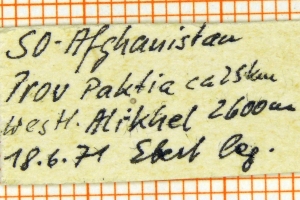 SO-Afghanistan
Prov Paktia ca 25km
westl. Alikhel 2600m
18.6.71 Ebert leg.